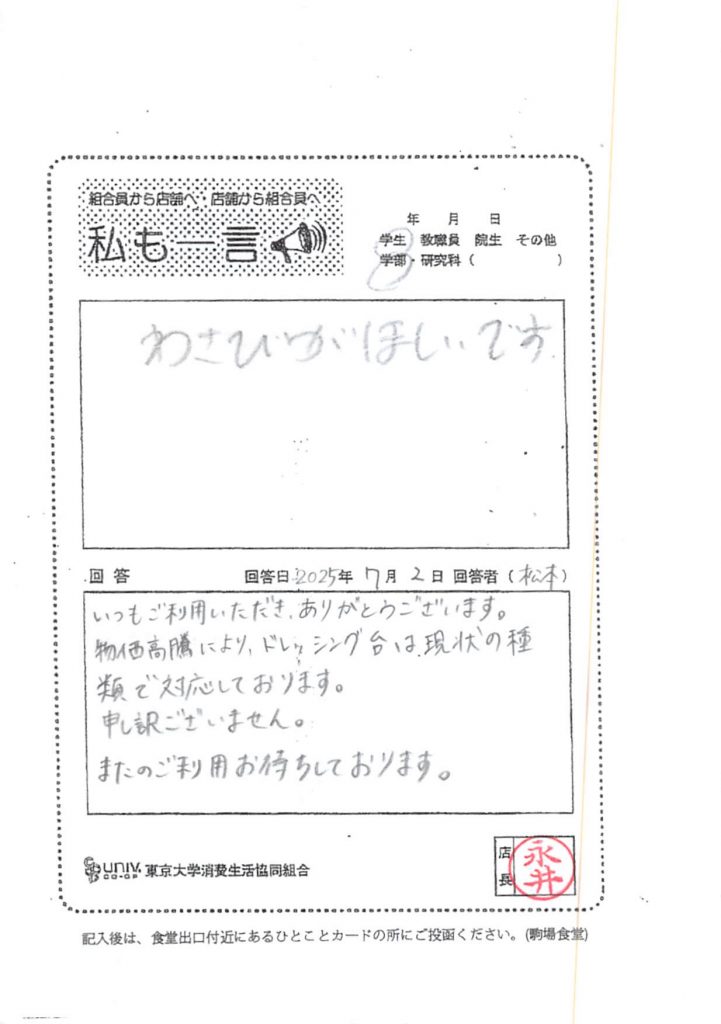 組合員から店舗へ・店舗から組合員へ
私も一言
年 月 日
学生 教職員 院生 その他
学部・研究科 ( )
わさびがほしいです
回答 回答日:2025年 7月 2日 回答者 (松本)
いつもご利用いただき、ありがとうございます。
物価高騰により、ドレッシング台は、現状の種
類で対応しております。
申し訳ございません。
またのご利用お待ちしております。
UNIV. CO-OP 東京大学消費生活協同組合
店長
永井
記入後は、食堂出口付近にあるひとことカードの所にご投函ください。(駒場食堂)